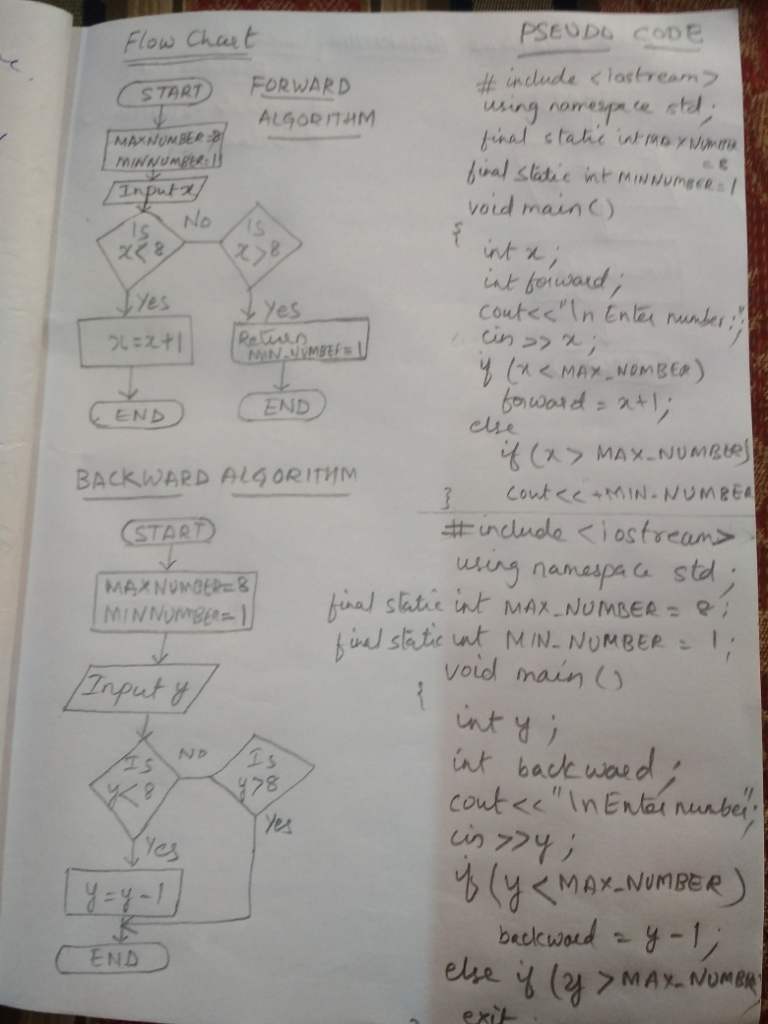 Flow Chart
FORWARD
ALGORITHM
START
MAXNUMBER=8
MINNUMBER=1
Input x
Is
x<8
NO
Is
x>8
Yes
Yes
x=x+1
Return
MIN_NUMBER=1
END
END
BACKWARD ALGORITHM
START
MAXNUMBER=8
MINNUMBER=1
Input y
Is
y<8
NO
Is
y>8
Yes
Yes
y=y-1
END
PSEUDO CODE
# include <iostream>
using namespace std;
final static int MAXNUMBER
= 8
final static int MINNUMBER=1
void main()
{
int x;
int forward;
cout<<"\n Enter number:";
cin >> x;
if (x < MAX_NUMBER)
forward = x+1;
else
if (x > MAX_NUMBER)
cout<< +MIN-NUMBER
}
#include <iostream>
using namespace std;
final static int MAX_NUMBER = 8;
final static int MIN_NUMBER = 1;
void main()
{
int y;
int backward;
cout<<"\n Enter number";
cin >>y;
if (y<MAX_NUMBER)
backward = y-1;
else if (y > MAX_NUMBER
exit